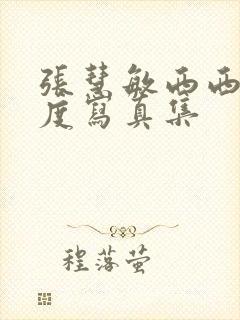 張慧敏西西
度寫真集
程落萤